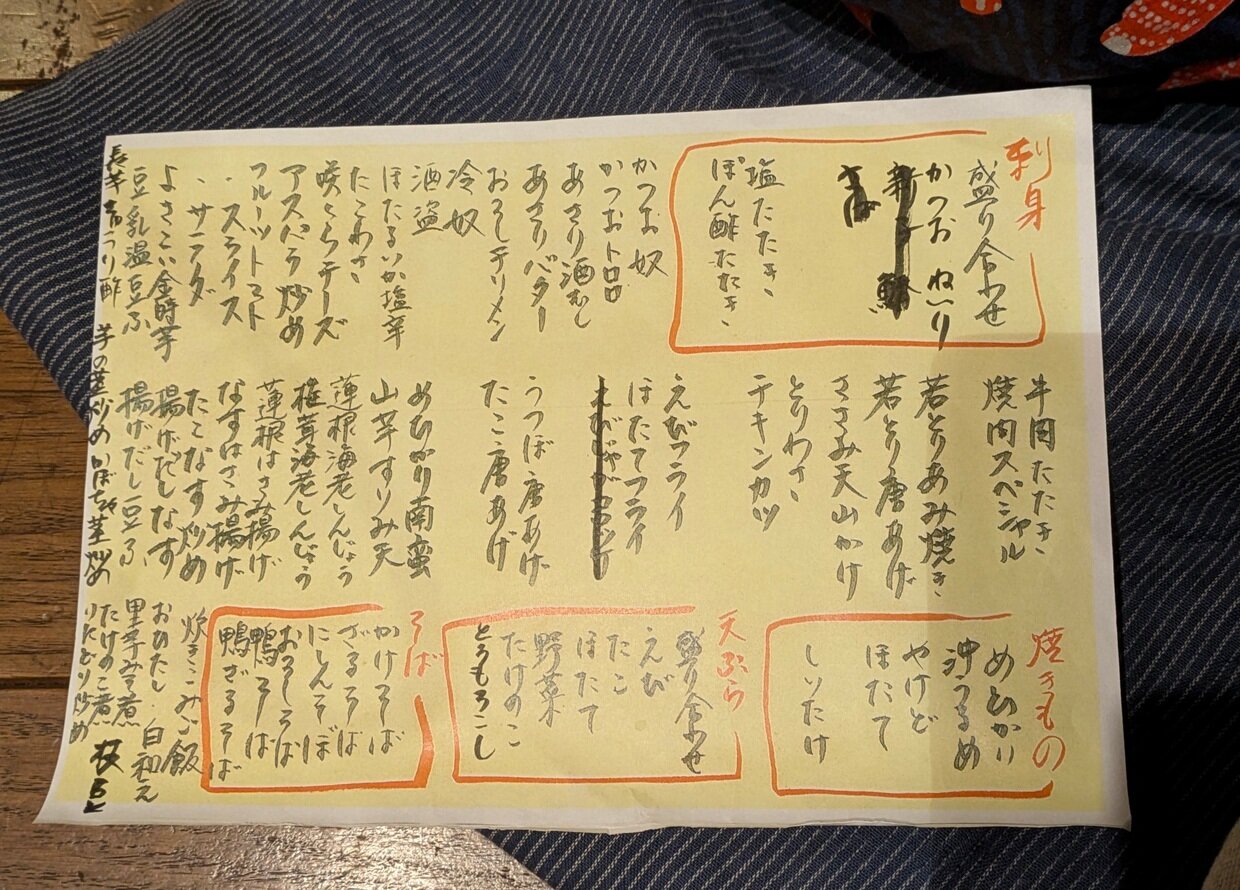 刺身
盛り合わせ
かつお ねいり
さば
塩たたき
ぽん酢たたき
かつお奴
かつおトロロ
あさり酒むし
あさりバター
おろしチリメン
冷奴
酒盗
ほたるいか塩辛
たこわさ
アスパラ炒め
フルーツトマト
・スライス
・サラダ
よさこい金時芋
豆乳温豆ふ
牛肉たたき
焼肉スペシャル
若とりあみ焼き
若とり唐あげ
ささみ天山かけ
とりわさ
チキンカツ
えびフライ
ほたてフライ
うつぼ唐あげ
たこ唐あげ
めひかり南蛮
山芋すりみ天
蓮根海老しんじょう
椎茸海老しんじょう
蓮根はさみ揚げ
なすはさみ揚げ
たこなす炒め
揚げだしなす
揚げだし豆ふ
芋の茎炒め かぼちゃ茎炒め
焼きもの
めひかり
沖うるめ
やけど
ほたて
しいたけ
天ぷら
盛り合わせ
えび
たこ
ほたて
野菜
たけのこ
とうもろこし
そば
かけそば
ざるそば
にしんそば
おろしそば
鴨そば
鴨ざるそば
炊きこみご飯
おひたし 白和え
里芋みそ煮
たけのこ煮
いたどり炒め
枝豆